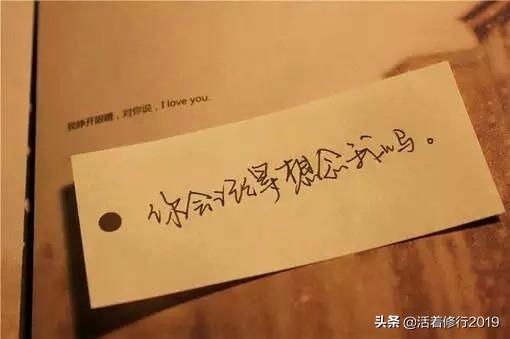 我睁开眼睛，对你说，I love you.
你会经常想念我吗。
头条 @活着修行2019